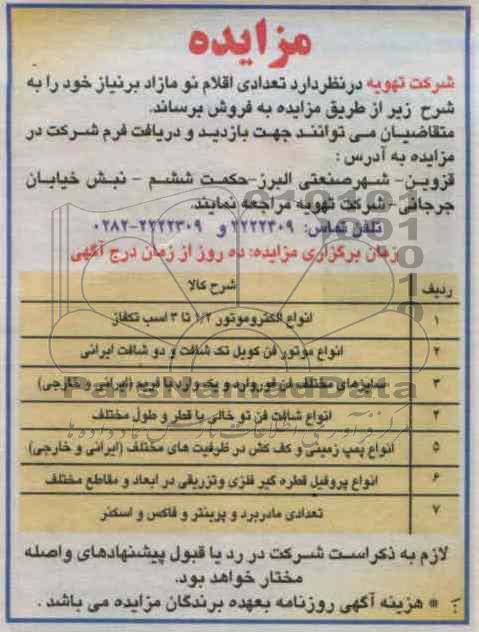 مزایده
شرکت تهویه درنظردارد تعدادی اقلام نو مازاد برنیاز خود را به
شرح زیر از طریق مزایده به فروش برساند.
متقاضیان می توانند جهت بازدید و دریافت فرم شرکت در
مزایده به آدرس :
قزوین- شهرصنعتی البرز-حکمت ششم - نبش خیابان
جرجانی- شرکت تهویه مراجعه نمایند.
تلفن تماس: ۲۲۲۲۳۰۹ و ۲۲۲۲۳۰۹-۰۲۸۲
زمان برگزاری مزایده: ده روز از زمان درج آگهی
ردیف شرح کالا
۱ انواع الکتروموتور ۱/۲ تا ۳ اسب تکفاز
۲ انواع موتور فن کویل تک شافت و دو شافت ایرانی
۳ سایزهای مختلف فن فوروارد و بک وارد با فریم (ایرانی و خارجی)
۴ انواع شافت فن تو خالی با قطر و طول مختلف
۵ انواع پمپ زمینی و کف کش در ظرفیت های مختلف (ایرانی و خارجی)
۶ انواع پروفیل قطره گیر فلزی وتزریقی در ابعاد و مقاطع مختلف
۷ تعدادی مادربرد و پرینتر و فاکس و اسکنر
لازم به ذکراست شرکت در رد یا قبول پیشنهادهای واصله
مختار خواهد بود.
* هزینه آگهی روزنامه بعهده برندگان مزایده می باشد .
ParsNamadData